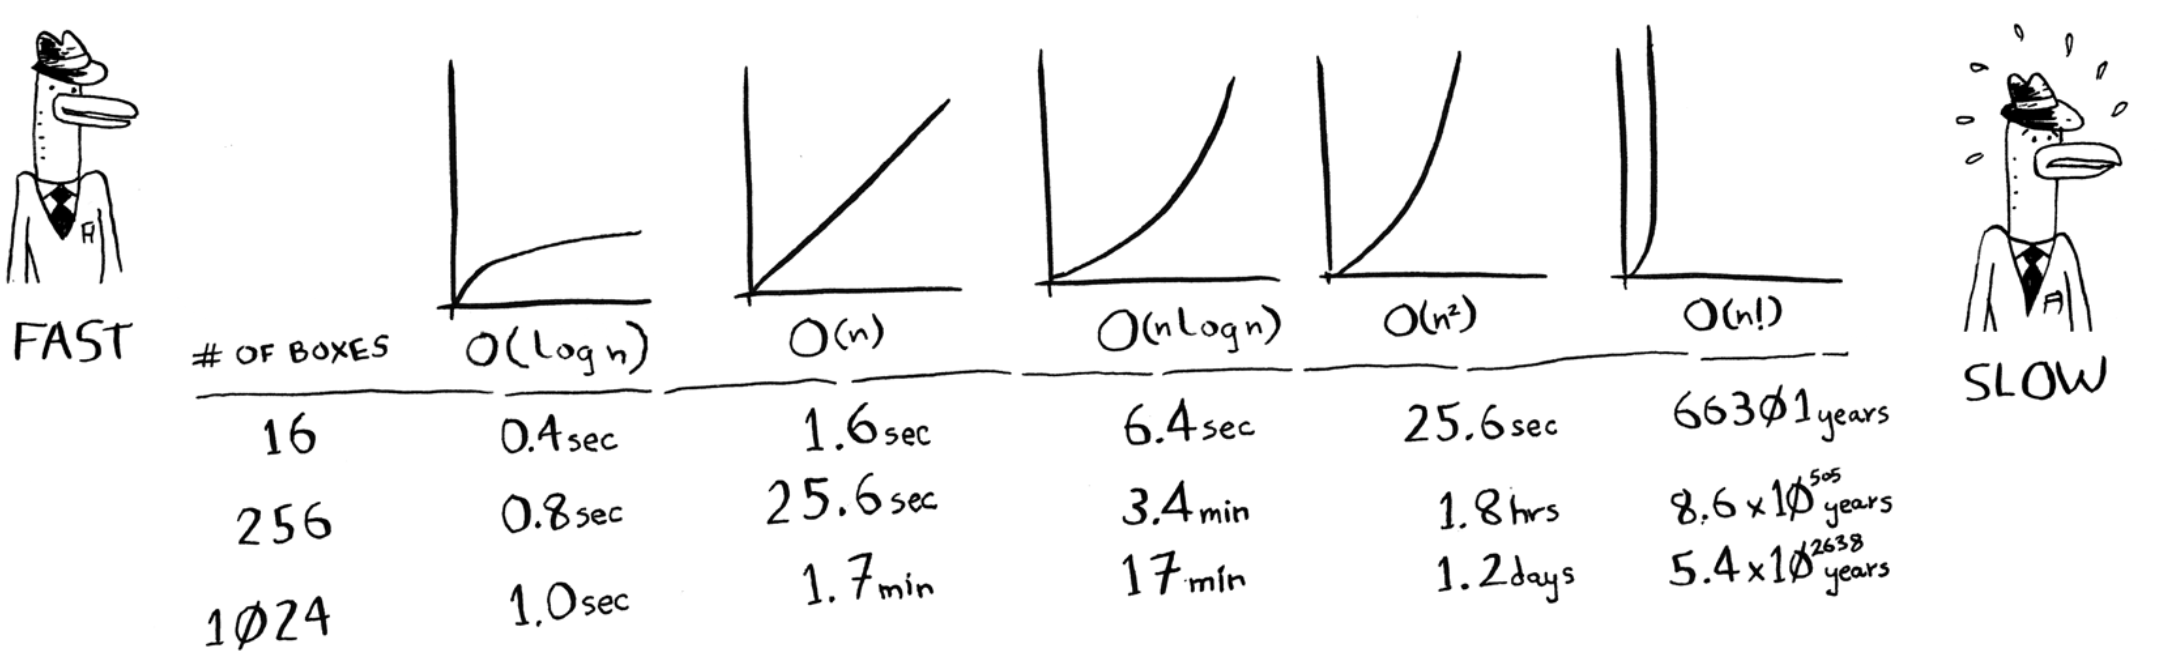 FAST
# OF BOXES O(log n) O(n) O(n log n) O(n²) O(n!)
SLOW
16 0.4 sec 1.6 sec 6.4 sec 25.6 sec 663Ø1 years
256 0.8 sec 25.6 sec 3.4 min 1.8 hrs 8.6 x 1Ø⁵⁰⁵ years
1Ø24 1.0 sec 1.7 min 17 min 1.2 days 5.4 x 1Ø²⁶³⁸ years
A
A